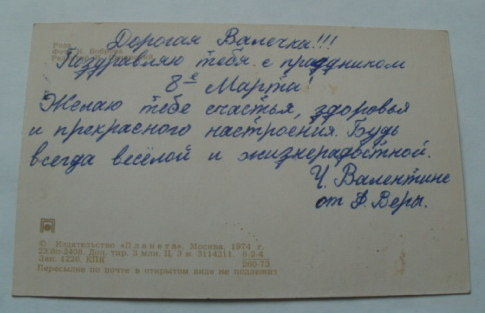 Роза
Дорогая Валечка!!!
Поздравляю тебя с праздником
8е Марта!
Желаю тебе счастья, здоровья
и прекрасного настроения. Будь
всегда весёлой и жизнерадостной.
Ч. Валентине
от Ф Веры.
© Издательство «Планета». Москва. 1974 г.
Зак. 1226. КПК
Пересылке по почте в открытом виде не подлежит